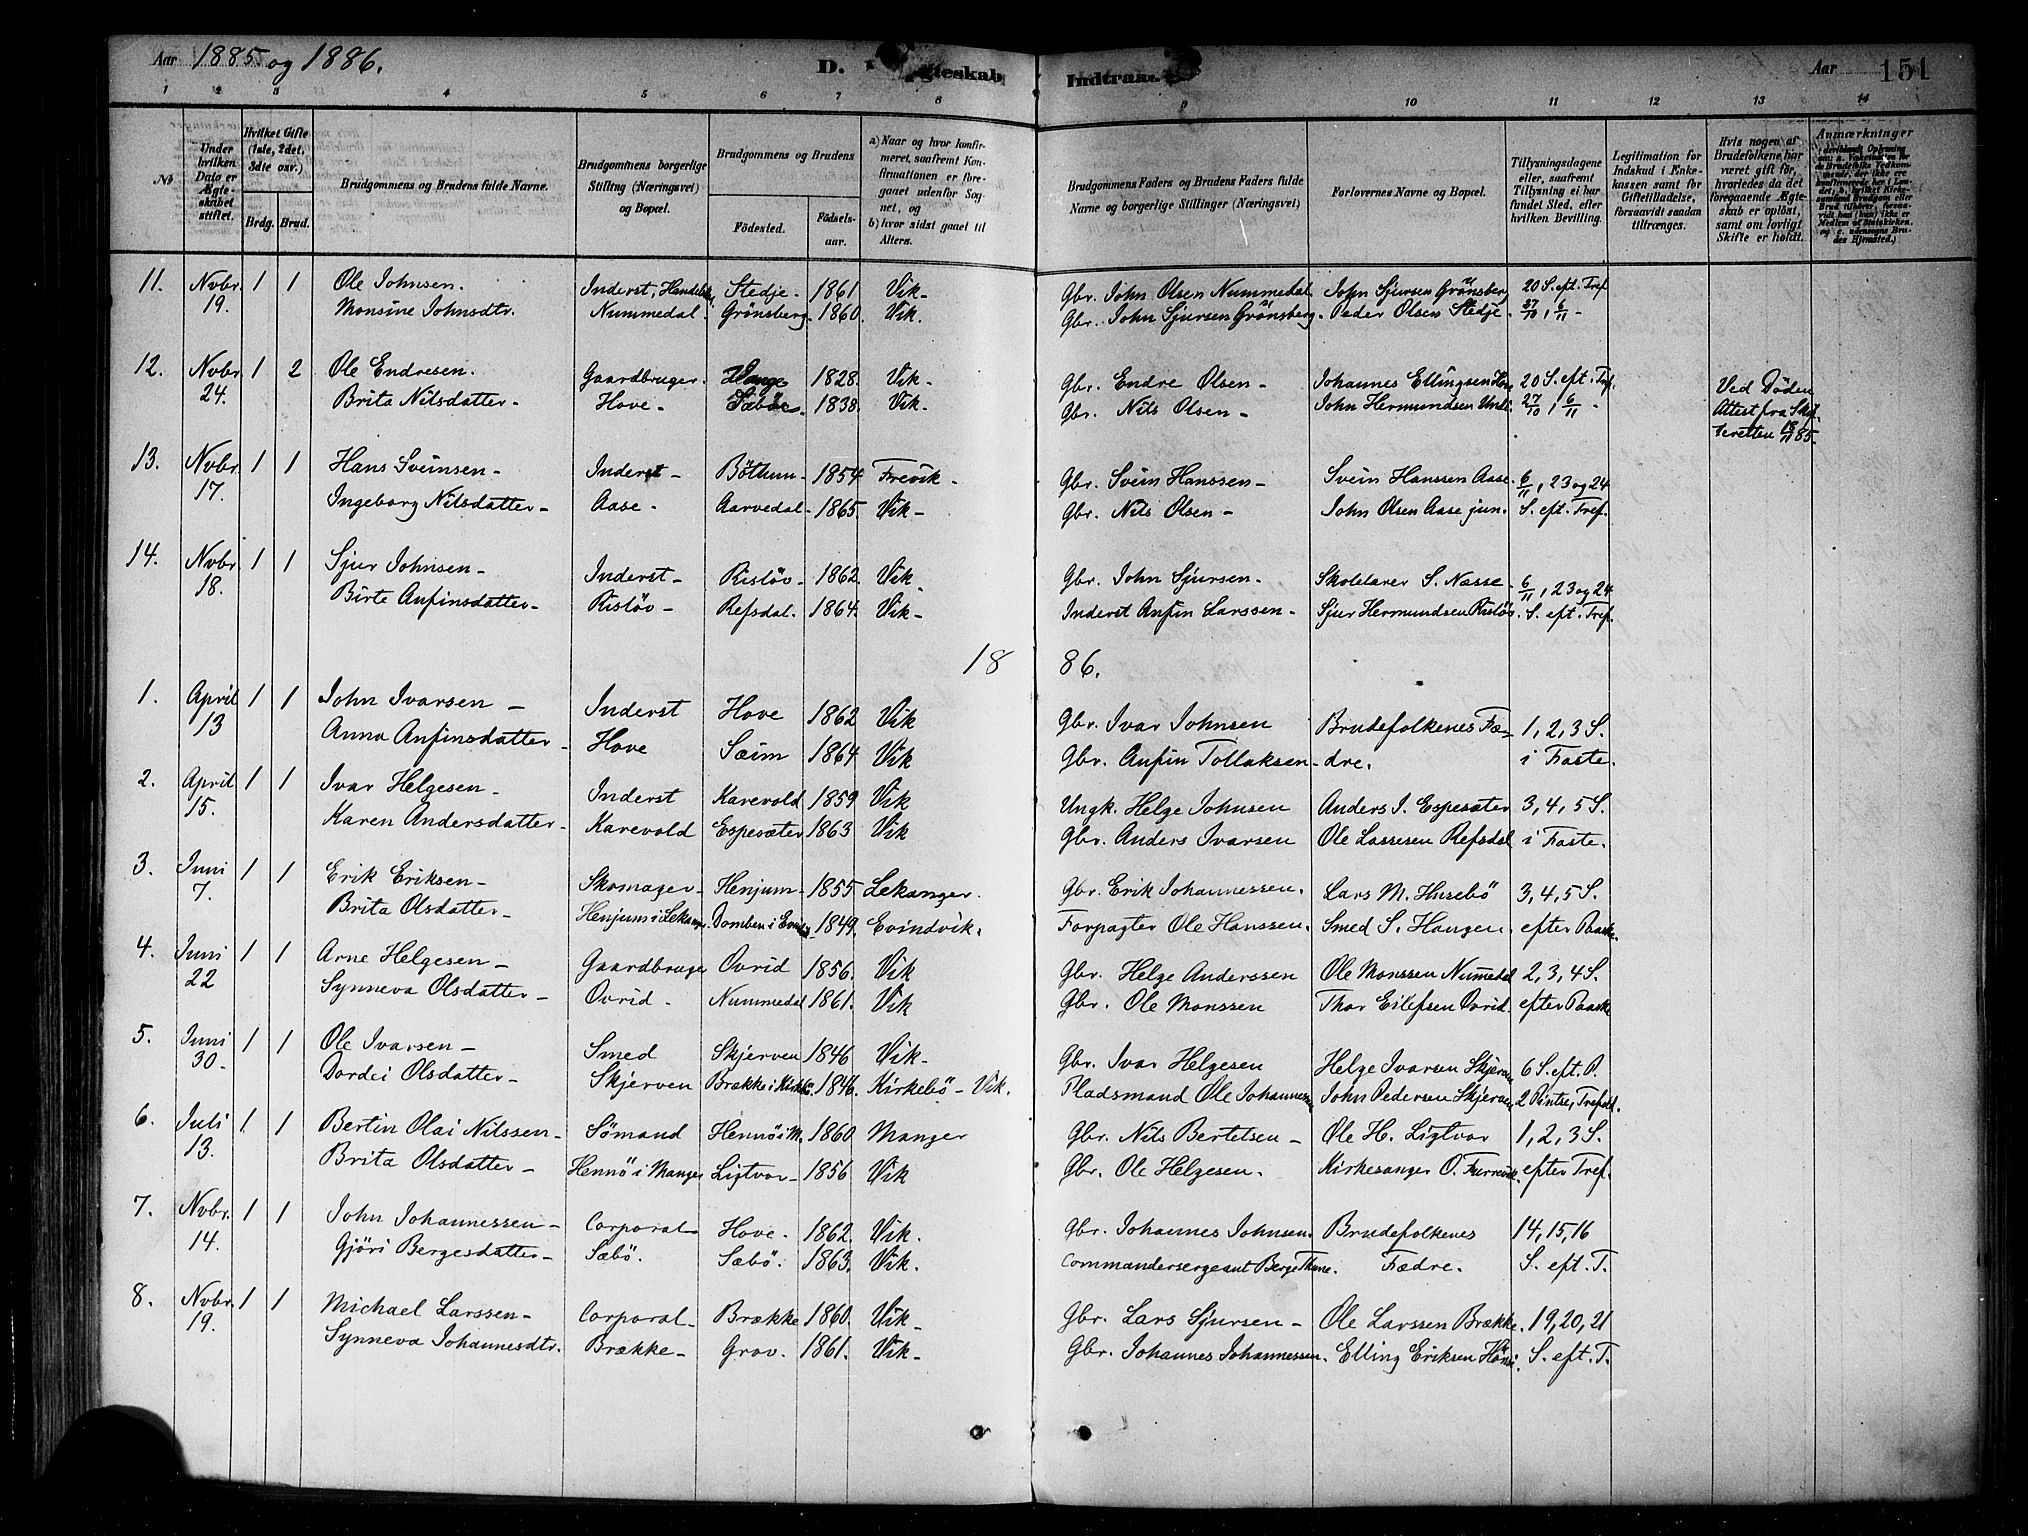 Aar 1885 og 1886.
D. gteskab Indtraa
Aar 151
1 2 3 4 5 6 7 8 9 10 11 12 13 14
No
Under hvilken Dato er Ægteskabet stiftet.
Hvilket Gifte (1ste, 2det, 3die osv.)
Brdg. Brud.
Brudgommens og Brudens fulde Navne.
Brudgommens borgerlige Stilling (Næringsvei) og Bopæl.
Brudgommens og Brudens
Fødested. Fødselsaar.
a) Naar og hvor konfirmeret, saafremt Konfirmationen er foregaaet udenfor Sognet, og
b) hvor sidst gaaet til Alters.
Brudgommens Faders og Brudens Faders fulde Navne og borgerlige Stillinger (Næringsvei)
Forlovernes Navne og Bopæl.
Tillysningsdagene eller, saafremt Tillysning ei har fundet Sted, efter hvilken Bevilling.
Legitimation for Indskud i Enkekassen samt for Giftetilladelse, forsaavidt saadan tiltrænges.
Hvis nogen af Brudefolkene har været gift før, hvorledes da det foregaaende Ægteskab er opløst, samt om lovligt Skifte er holdt.
Anmærkninger
11. Novbr. 19. 1 1 Ole Johnsen. Inderst, Stedje- 1861 Vik- Gbr. John Olsen Nummedal John Sjursen Grønsberg 20 S. eft. Tref
Monsine Johnsdtr. Nummedal. Grønsberg. 1860. Vik. Gbr. John Sjursen Grønsberg. Peder Olsen Stedje. 27/10, 6/11
12. Novbr. 24. 1 2 Ole Endresen. Gaardbruger. 1828. Vik- Gbr. Endre Olsen- Johannes Ellingsen 20 S. eft. Tref. Ved Døden
Brita Nilsdatter- Hove- Sæbøe- 1838. Vik- Gbr. Nils Olsen- John Hermundsen 27/10, 6/11- Attest fra Skifteretten 18/11 85.
13. Novbr. 17. 1 1 Hans Sveinsen- Inderst- Bøthun- 1854 Fresvik- Gbr. Svein Hanssen- Svein Hanssen Aase. 6/11, 23 og 24
Ingeborg Nilsdatter- Aase- Aarvedal- 1865 Vik- Gbr. Nils Olsen- John Olsen Aase jun. S. eft. Tref.
14. Novbr. 18. 1 1 Sjur Johnsen- Inderst- Risløv- 1862. Vik- Gbr. John Sjursen- Skolelærer S. Næsse- 6/11, 23 og 24
Birte Anfinsdatter- Risløv- Refsdal. 1864. Vik- Inderst Anfin Larssen- Sjur Hermundsen Risløv. S. eft. Tref.
1886.
1. April 13 1 1 John Ivarsen- Inderst Hove 1862 Vik Gbr. Ivar Johnsen Brudefolkenes Fæ- 1, 2, 3 S.
Anna Anfinsdatter- Hove Sæim 1864 Vik Gbr. Anfin Tollaksen- dre. i Faste.
2. April 15. 1 1 Ivar Helgesen- Inderst Karevold 1859 Vik Ungk. Helge Johnsen Anders I. Espesæter 3, 4, 5 S.
Karen Andersdatter- Karevold Espesæter 1863 Vik Gbr. Anders Ivarsen Ole Lassesen Refsdal i Faste.
3. Juni 7. 1 1 Erik Eriksen- Skomager- Henjum- 1855 Lekanger. Gbr. Erik Johannessen. Lars M. Husebø 3, 4, 5 S.
Brita Olsdatter- Henjum i Lekanger. 1849. Evindvik. Forpagter Ole Hanssen. Smed S. Hangen. efter Paaske.
4. Juni 22 1 1 Arne Helgesen- Gaardbruger Ovrid 1856. Vik Gbr. Helge Anderssen Ole Monssen Nummedal 2, 3, 4 S.
Synneva Olsdatter- Ovrid. Nummedal 1861. Vik Gbr. Ole Monssen Thor Eilefsen Ovrid. efter Paaske
5. Juni 30. 1 1 Ole Ivarsen- Smed Skjerven 1846 Vik- Gbr. Ivar Helgesen Helge Ivarsen Skjerven 6 S. eft. P.
Dordei Olsdatter- Skjerven Brække i Kirkebø. 1846. Kirkebø- Vik. Pladsmand Ole Johannessen John Pedersen Skjerven 2 Pintse, Trefold.
6. Juli 13. 1 1 Bertin Olai Nilssen- Sømand Hennø i M. 1860 Manger Gbr. Nils Bertelsen- Ole H. Ligtvor 1, 2, 3 S.
Brita Olsdatter- Hennø i Manger Ligtvor- 1856 Vik Gbr. Ole Helgesen. Kirkesanger O. efter Tref.
7. Novbr. 14. 1 1 John Johannessen- Corporal- Hove. 1862. Vik. Gbr. Johannes Johnsen. Brudefolkenes 14, 15, 16
Gjøri Bergesdatter- Sæbø. Sæbø. 1863. Vik. Commandersergeant Berge Thune. Fædre. S. eft. T.
8. Novbr. 19. 1 1 Michael Larssen- Corporal- Brække 1860. Vik- Gbr. Lars Sjursen- Ole Larssen Brække. 19, 20, 21
Synneva Johannesdtr. Brække- Grov. 1861. Vik- Gbr. Johannes Johannessen. Elling Eriksen S. eft. T.